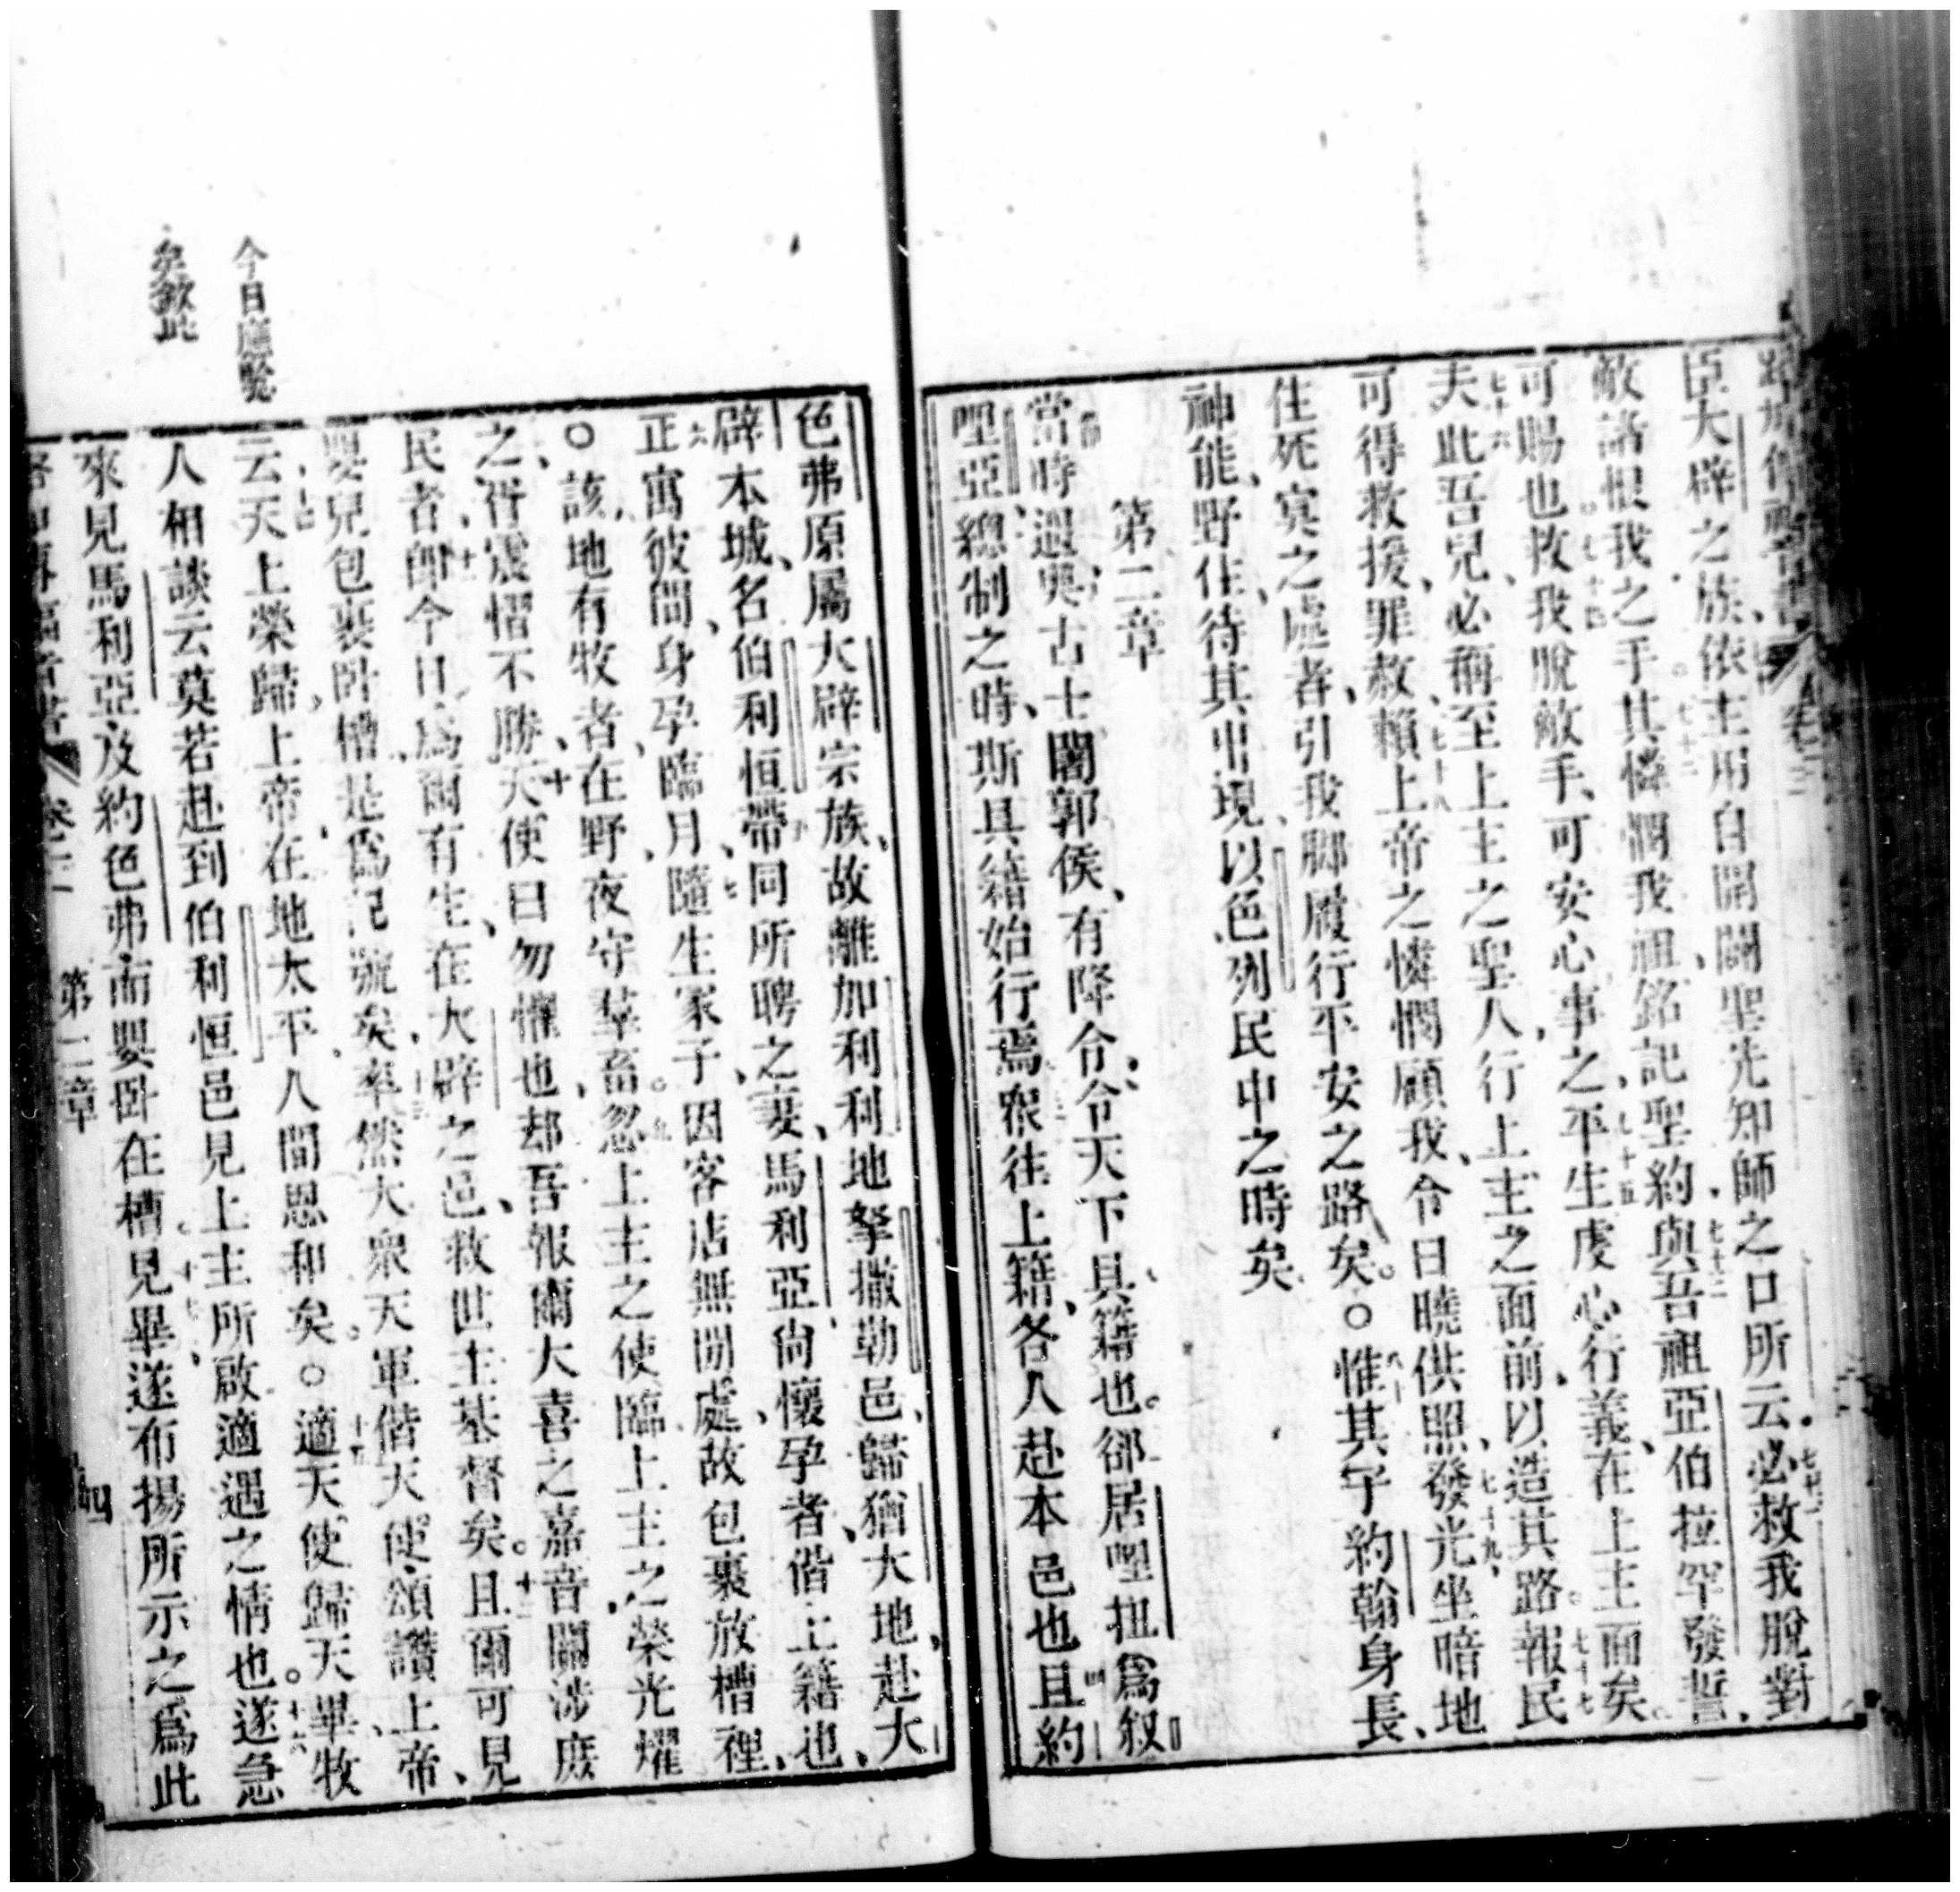 路加傳福音書 卷三
臣大辟之族、依主用自開闢聖先知師之口所云、必救我脫對
敵諸恨我之手、其憐憫我祖、銘記聖約、與吾祖亞伯拉罕發誓、
可賜也、救我脫敵手、可安心事之、平生虔心行義、在上主面矣。
夫此吾兒、必稱至上主之聖人、行上主之面前、以造其路、報民
可得救援、罪赦、賴上帝之憐憫顧我、令日曉供照、發光坐暗地
住死寞之處者、引我腳履行平安之路矣。○惟其子約翰身長、
神能、野住、待其出現、以色列民中之時矣
第二章
當時遐㒷古士闍郭侯、有降令、令天下具籍也。郤居哩扭爲叙
哩亞、總制之時、斯具籍始行焉、衆往上籍、各人赴本邑也、且約
色弗原屬大辟宗族、故離加利利地拏撒勒邑、歸猶大地、赴大
辟本城、名伯利恒、帶同所聘之妻、馬利亞、尙懷孕者、偕上籍也、
正寓彼間、身孕臨月、隨生冢子、因客店無閒處、故包裹放槽裡、
○該地有牧者、在野夜守羣畜。忽上主之使臨、上主之榮光燿
之、符震慴不勝、天使曰勿懼也、却吾報爾大喜之嘉音、關涉庶
民者、卽今日爲爾有生、在大辟之邑、救世主基督矣。且爾可見
嬰兒包裹臥槽、是爲記號矣、率然大衆天軍偕天使、頌讚上帝、
云天上榮歸上帝、在地太平、人間恩和矣。○適天使歸天畢、牧
人相談云、莫若赴到伯利恒邑、見上主所啟適遇之情也。遂急
來見馬利亞及約色弗、而嬰臥在槽、見畢、遂布揚所示之爲此
路加傳福音書 卷三 第二章 四
今日應驗
矣欽此